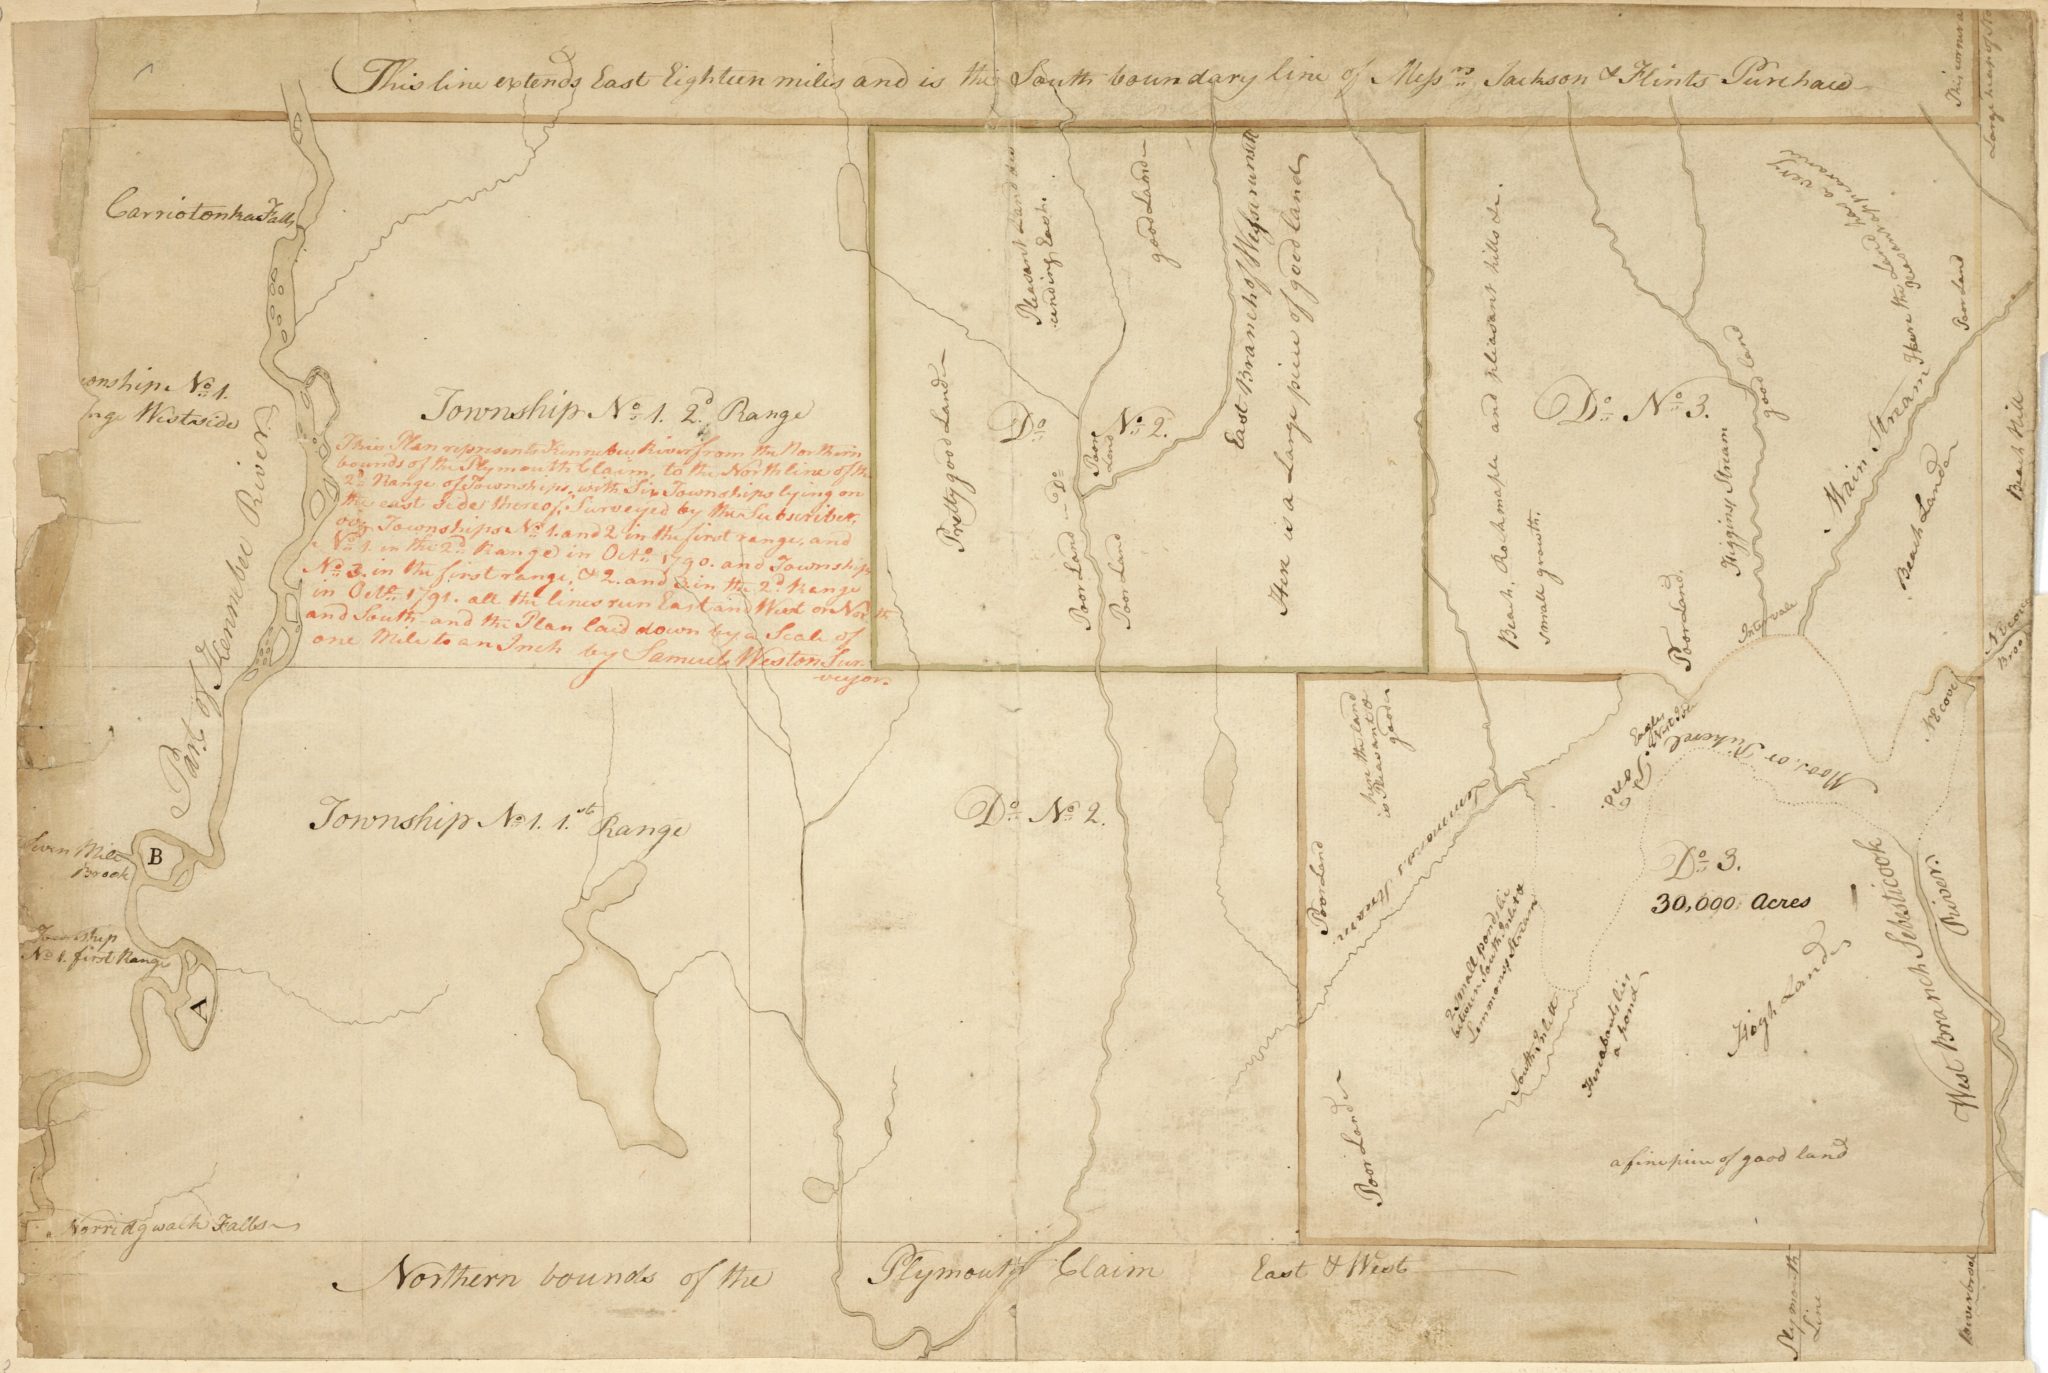 This line extends East Eighteen miles and is the South boundary line of Mess.rs Jackson & Flints Purchase
This corner a
Carriotonka Falls
onship No. 1.
nge Westside
Part of Kennebec River
Township No. 1. 2d. Range
This Plan represents Kennebec River from the Northern
bounds of the Plymouth Claim, to the North line of the
2d. Range of Townships, with Six Townships lying on
the east side thereof, Surveyed by the Subscriber,
Townships No. 1. and 2 in the first range, and
No. 1. in the 2d. Range in Octo. 1790. and Township
No. 3. in the first range, & 2. and 3. in the 2d. Range
in Octr. 1791. all the lines run East and West or North
and South and the Plan laid down by a Scale of
one Mile to an Inch by Samuel Weston Sur-
veyor.
Do. No. 2.
Pretty good Land
Pleasant Land
ending East.
good Land
East Branch of Wessurunsett
Here is a Large piece of good land
Poor Land
Do.
Poor
Land
Poor Land
Do. No. 3.
Beach, Rockmaple and pleasant hills &c.
small growth.
Higgins, Stream
good land
Poor Land.
Intervale
Main Stream
Here the Land had a very
pleasant appearance
Poor Land
Beach Land
Beach Hill
Brook
Seven Mile
Brook
B
A
Township
No. 1. first Range
Norridgwalk Falls
Township No. 1. 1.st Range
Do. No. 2.
here the land
is Pleasant &
good
Poor Land
Lemmons Stream
Eagles
Nest
Moos, or Pickerel
Pond.
NE cove
Do. 3.
30,000 Acres
2 Small ponds lie
between South Inlet &
Lemmons Stream
South Inlett
Hereabouts lies
a pond
High Lands
West Branch Sebesticook
River.
Poor Land
a fine piece of good land
Northern bounds of the Plymouth Claim East & West
Plymouth
Line